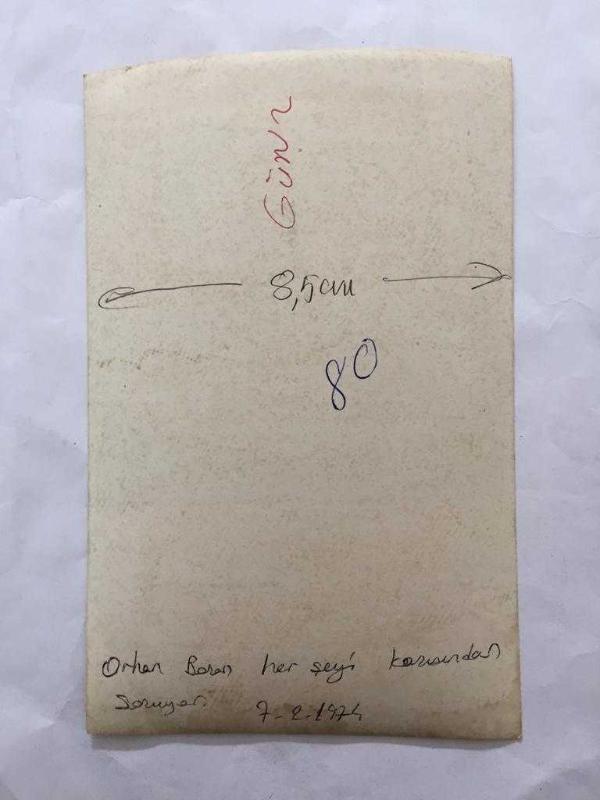 8,5cm
80
Orhan Boran her şeyi karısından
soruyor. 7-2-1974